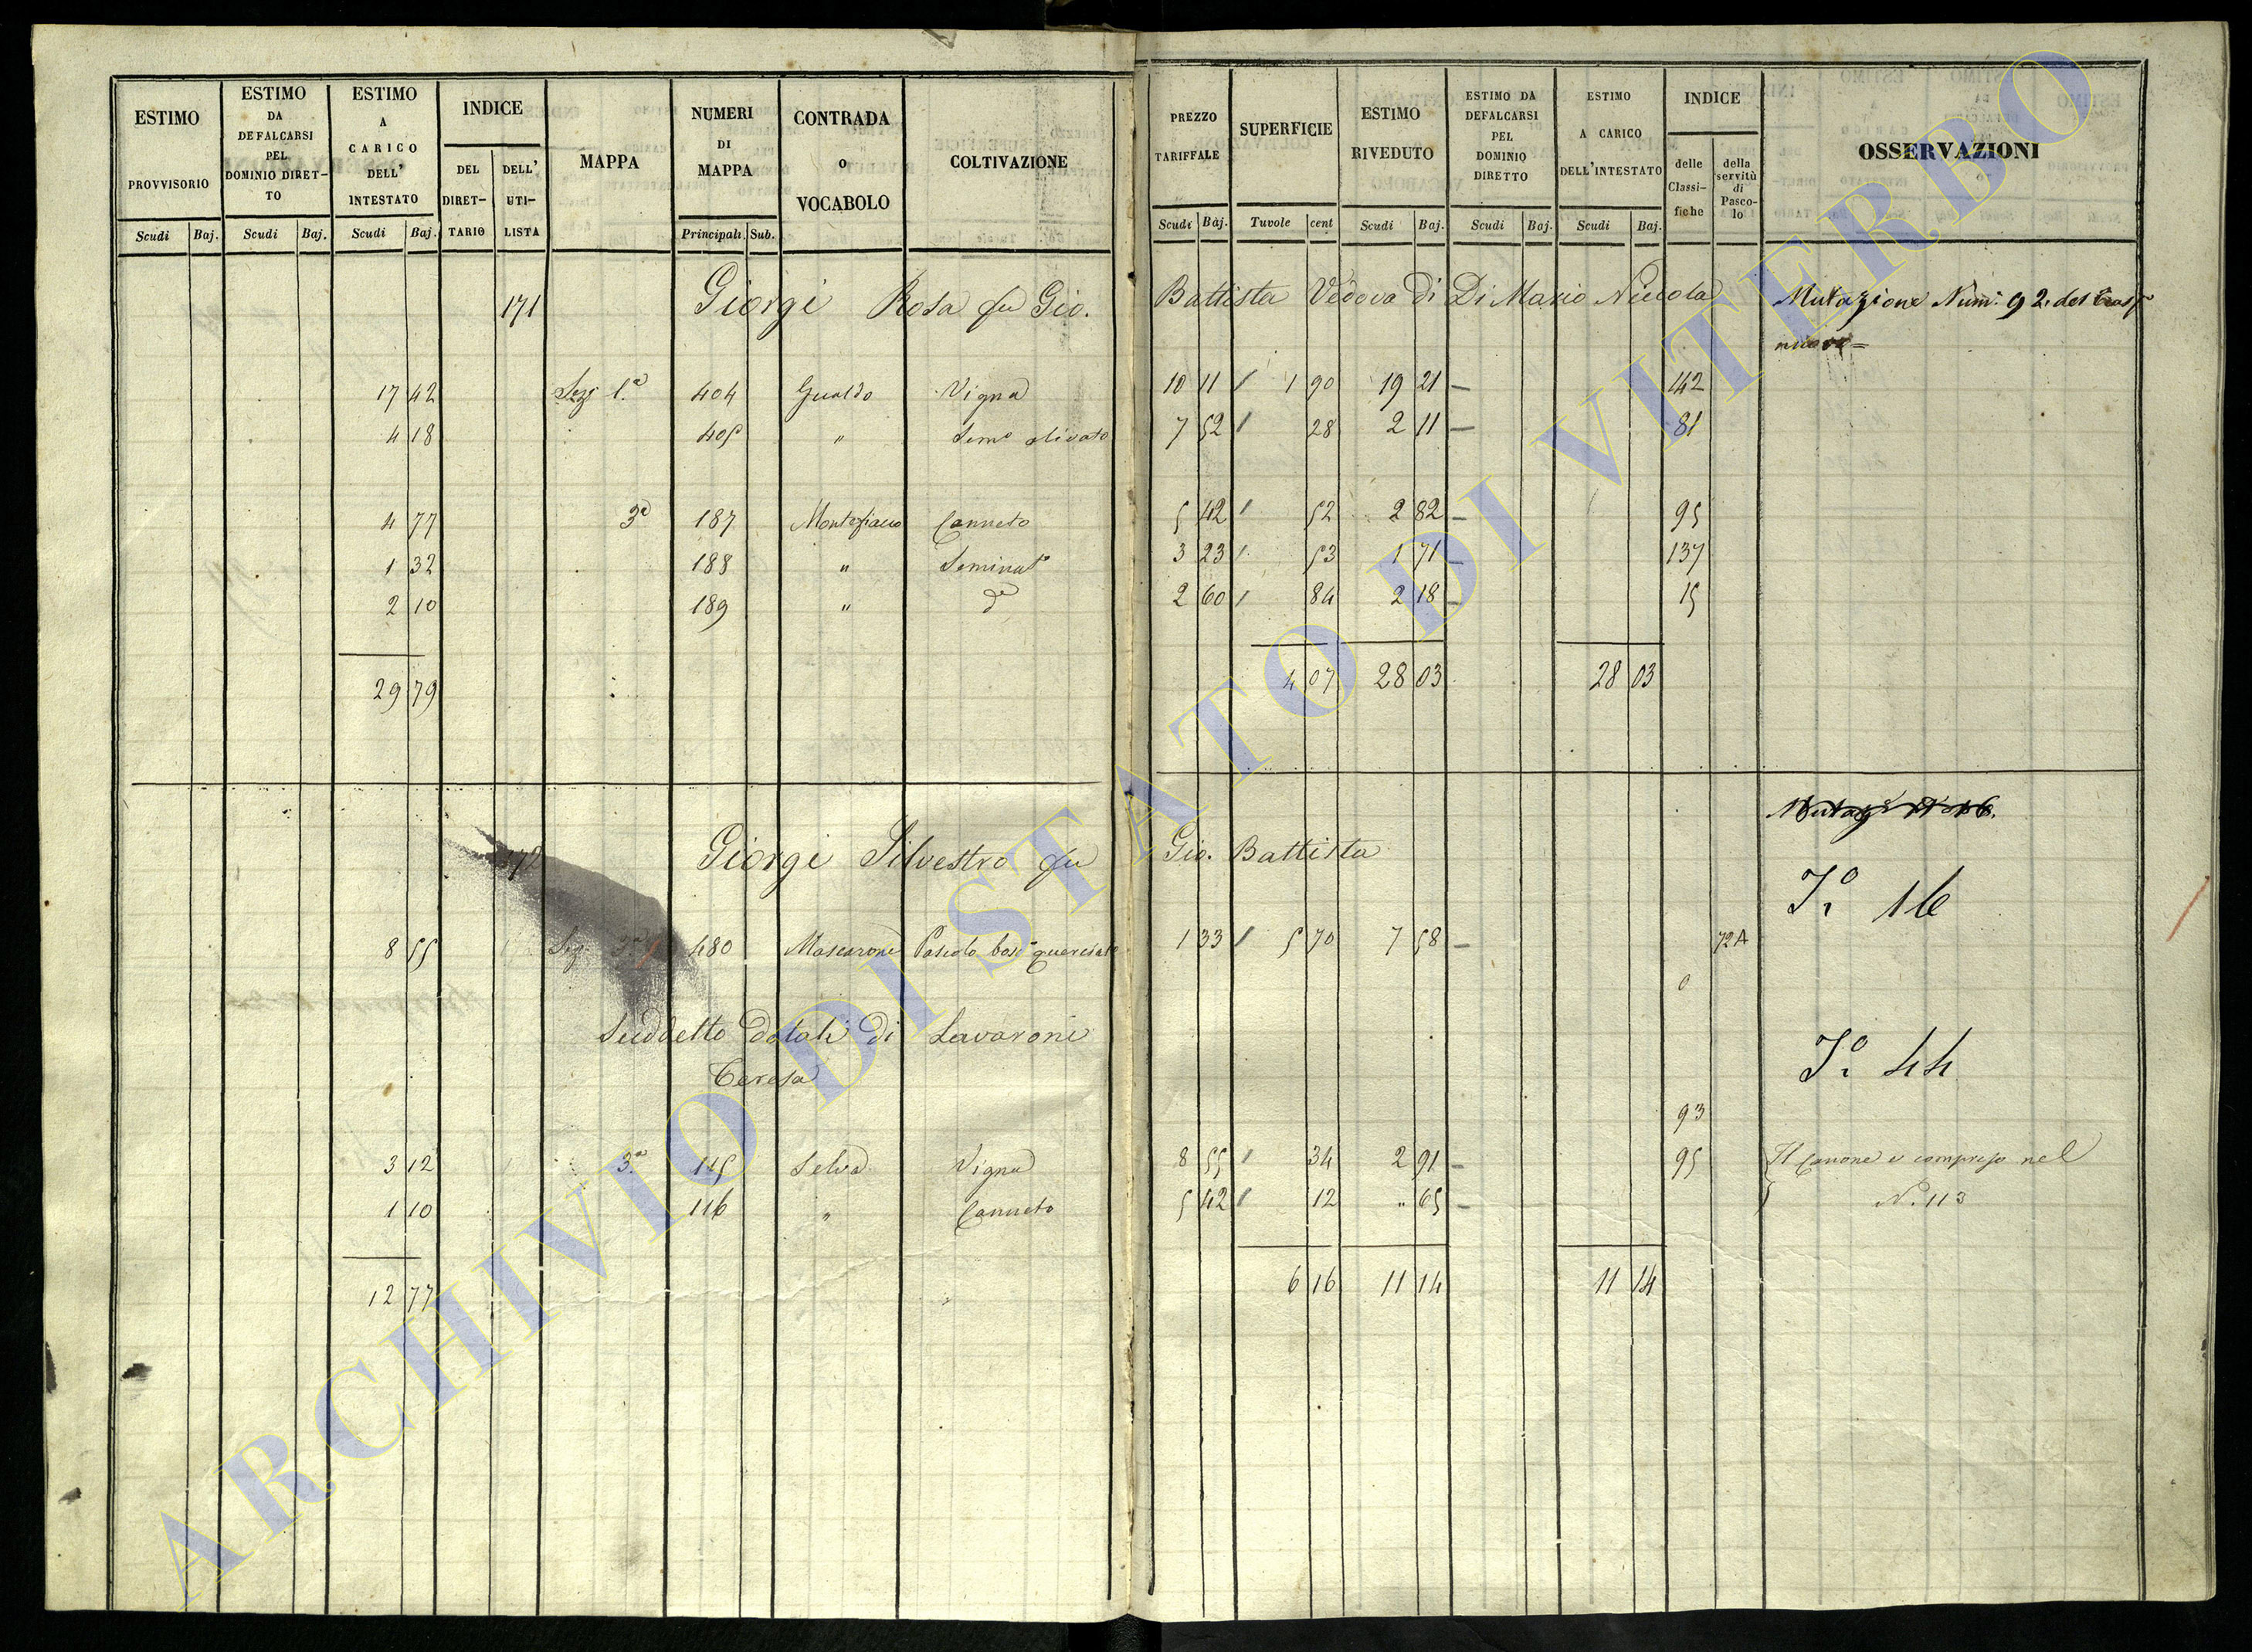 ESTIMO PROVVISORIO ESTIMO DA DEFALCARSI PEL DOMINIO DIRET-TO ESTIMO A CARICO DELL' INTESTATO INDICE DEL DIRET-TARIO DELL' UTI-LISTA MAPPA NUMERI DI MAPPA CONTRADA O VOCABOLO COLTIVAZIONE PREZZO TARIFFALE SUPERFICIE ESTIMO RIVEDUTO ESTIMO DA DEFALCARSI PEL DOMINIO DIRETTO ESTIMO A CARICO DELL'INTESTATO INDICE delle Classi-fiche della servitù di Pasco-lo OSSERVAZIONI
Scudi Baj. Scudi Baj. Scudi Baj. Principali Sub. Scudi Baj. Tuvole cent Scudi Baj. Scudi Baj. Scudi Baj.
171 Giorgi Rosa fu Gio. Battista Vedova di Di Mario Niccola Mutazione Num. 92. del
17 42 Sez. 1.a 404 Gualdo Vigna 10 11 1 90 19 21 — 142
4 18 405 " Sem.o olivato 7 52 28 2 11 — 81
4 77 3a 187 Montefiacco Canneto 5 42 52 2 82 — 95
1 32 188 " Seminat.o 3 23 53 1 71 — 137
2 10 189 " d.o 2 60 84 2 18 — 15
29 79 4 07 28 03 28 03
172 Giorgi Silvestro fu Gio. Battista
I.o 16
8 55 Sez. 3.a 480 Mascarone Pascolo bos.o quercato 1 33 5 70 7 58 — 72A
0
Suddetto dotali di Lavaroni
Teresa
I.o 44
93
3 12 3.a 115 Selva Vigna 8 55 34 2 91 — 95 Il Canone è compreso nel
1 10 116 " Canneto 5 42 12 " 65 — N. 113
12 77 6 16 11 14 11 14
ARCHIVIO DI STATO DI VITERBO